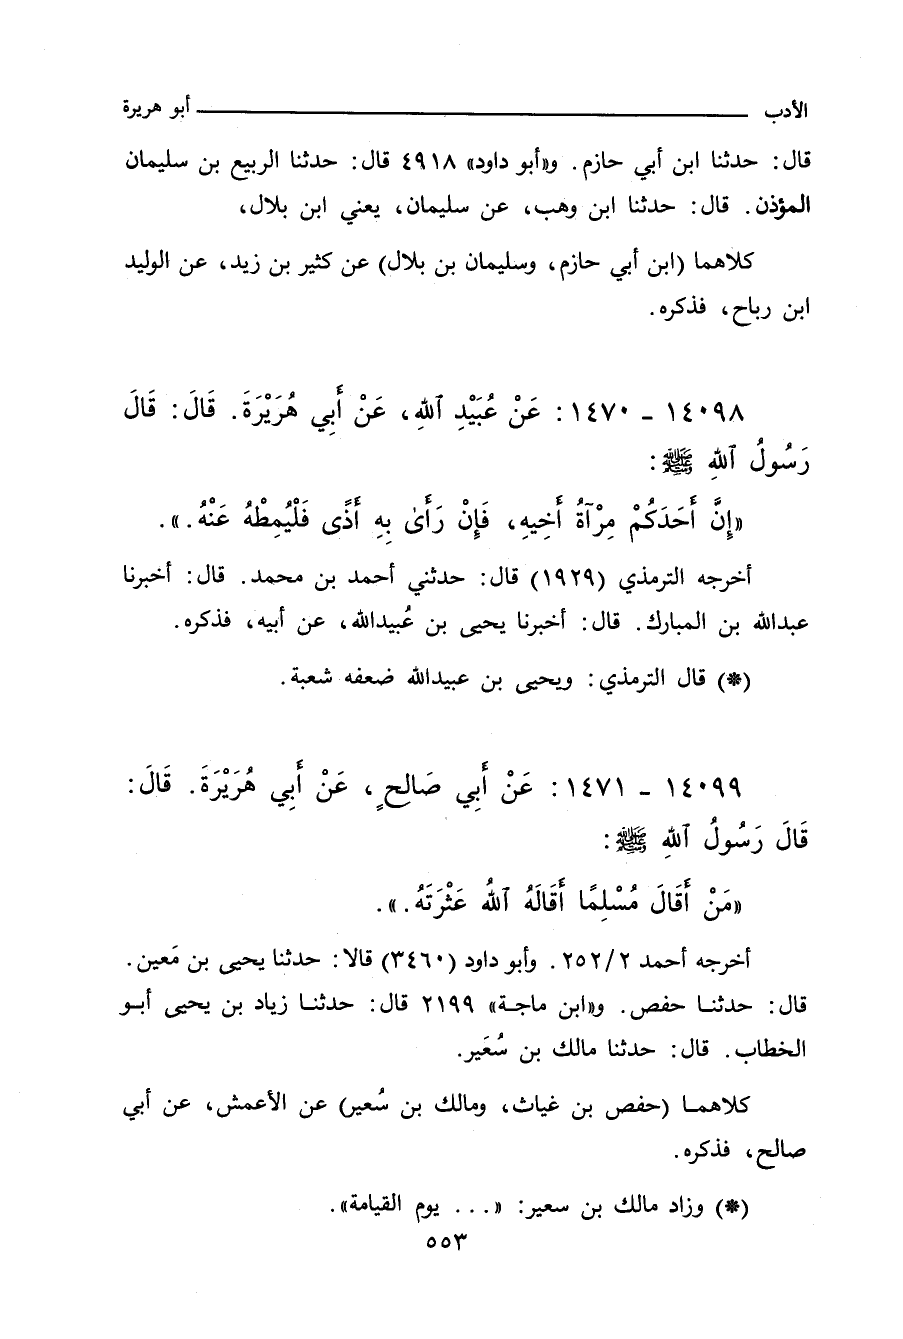 الأدب ـــــــــ أبو هريرة
قال: حدثنا ابن أبي حازم. و«أبو داود» ٤٩١٨ قال: حدثنا الربيع بن سليمان
المؤذن. قال: حدثنا ابن وهب، عن سليمان، يعني ابن بلال،
كلاهما (ابن أبي حازم، وسليمان بن بلال) عن كثير بن زيد، عن الوليد
ابن رباح، فذكره.
١٤٠٩٨ ـ ١٤٧٠: عَنْ عُبَيْدِ ٱللهِ، عَنْ أَبِي هُرَيْرَةَ. قَالَ: قَالَ
رَسُولُ ٱللهِ ﷺ:
«إِنَّ أَحَدَكُمْ مِرْآةُ أَخِيهِ، فَإِنْ رَأَىٰ بِهِ أَذًى فَلْيُمِطْهُ عَنْهُ.».
أخرجه الترمذي (١٩٢٩) قال: حدثني أحمد بن محمد. قال: أخبرنا
عبدالله بن المبارك. قال: أخبرنا يحيى بن عُبيدالله، عن أبيه، فذكره.
(*) قال الترمذي: ويحيى بن عبيدالله ضعفه شعبة.
١٤٠٩٩ ـ ١٤٧١: عَنْ أَبِي صَالِحٍ، عَنْ أَبِي هُرَيْرَةَ. قَالَ:
قَالَ رَسُولُ ٱللهِ ﷺ:
«مَنْ أَقَالَ مُسْلِمًا أَقَالَهُ ٱللهُ عَثْرَتَهُ.».
أخرجه أحمد ٢/ ٢٥٢. وأبو داود (٣٤٦٠) قالا: حدثنا يحيى بن مَعين.
قال: حدثنـا حفص. و«ابن ماجـة» ٢١٩٩ قال: حدثنـا زياد بن يحيى أبـو
الخطاب. قال: حدثنا مالك بن سُعَير.
كلاهمـا (حفص بن غياث، ومالك بن سُعير) عن الأعمش، عن أبي
صالح، فذكره.
(*) وزاد مالك بن سعير: «... يوم القيامة».
٥٥٣